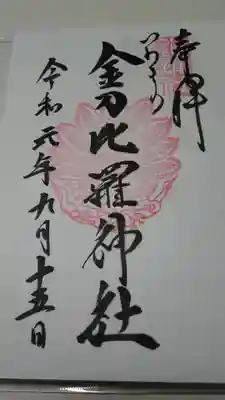 奉拝
金刀比羅神社
令和元年九月十五日